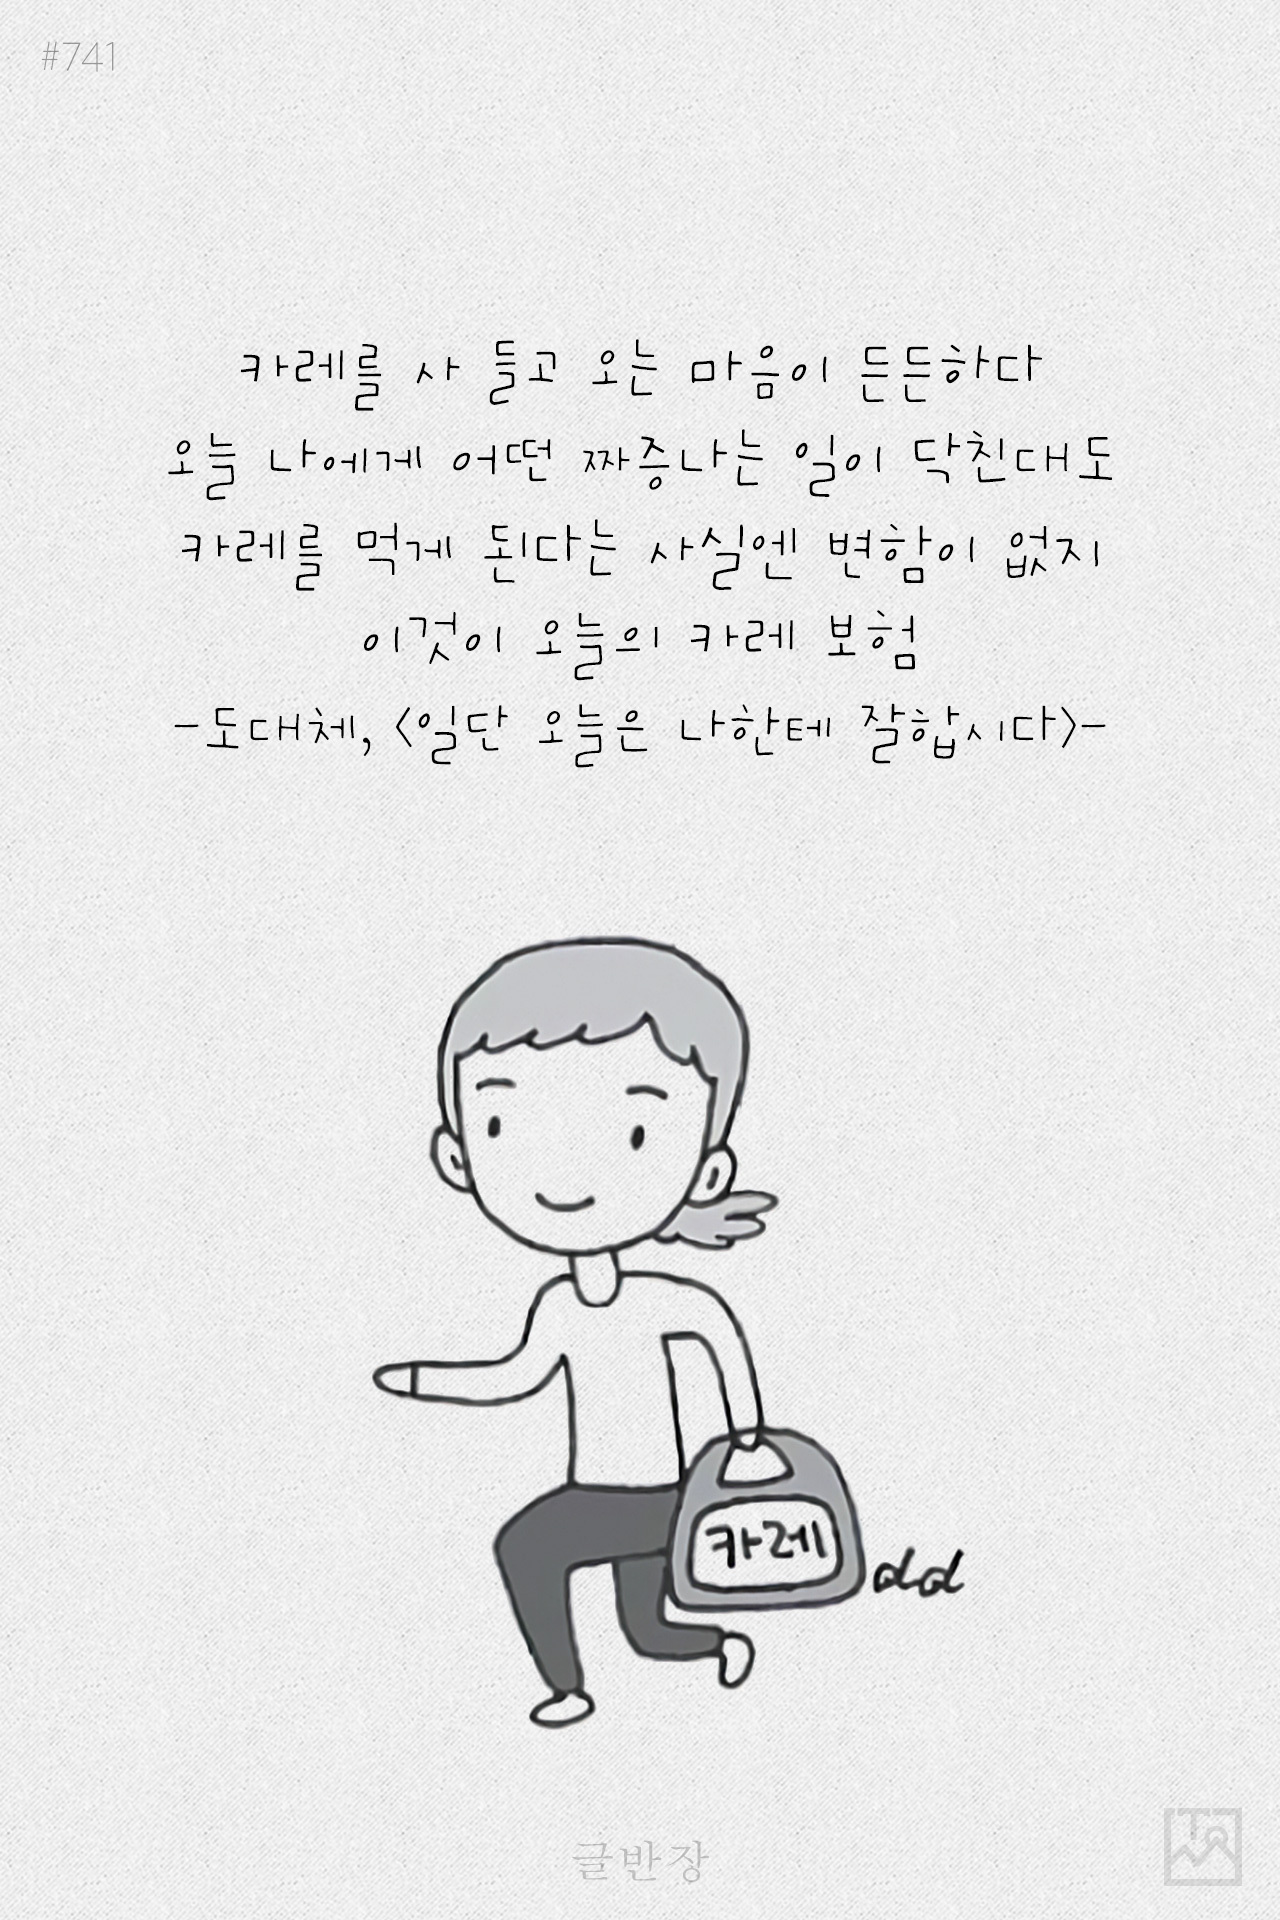 #741
카레를 사 들고 오는 마음이 든든하다
오늘 나에게 어떤 짜증나는 일이 닥친대도
카레를 먹게 된다는 사실엔 변함이 없지
이것이 오늘의 카레 보험
-도대체, <일단 오늘은 나한테 잘합시다>-
카레
글반장